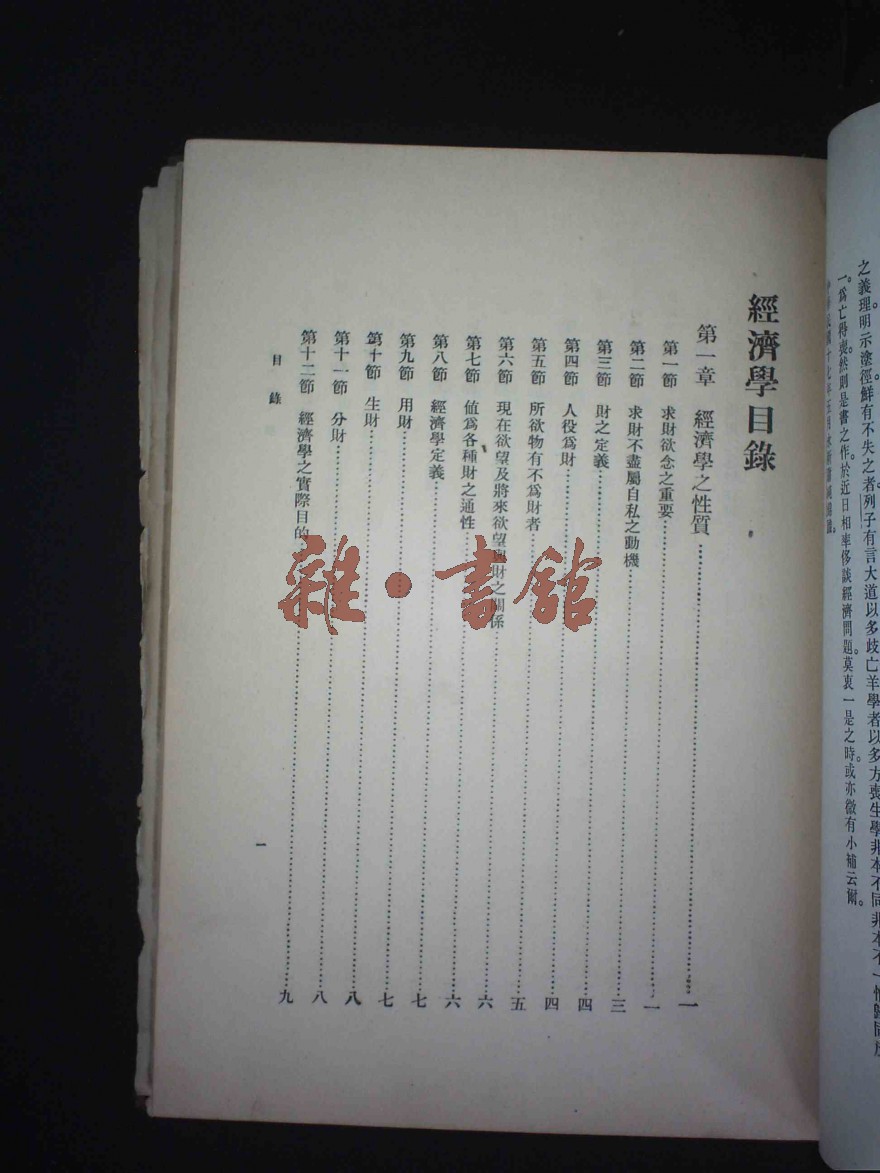 之義理。明示塗徑。鮮有不失之者。列子有言大道以多歧亡羊學者以多方喪生學非本不同非本不一
一。爲亡得喪。然則是書之作。於近日相率侈談經濟問題。莫衷一是之時。或亦微有小補云爾。
經濟學目錄
第一章 經濟學之性質 一
第一節 求財欲念之重要 一
第二節 求財不盡屬自私之動機 三
第三節 財之定義 四
第四節 人役爲財 四
第五節 所欲物有不爲財者 五
第六節 現在欲望及將來欲望與財之關係 六
第七節 値爲各種財之通性 六
第八節 經濟學定義 七
第九節 用財 七
第十節 生財 八
第十一節 分財 八
第十二節 經濟學之實際目的 九
目錄
一
雜·書館